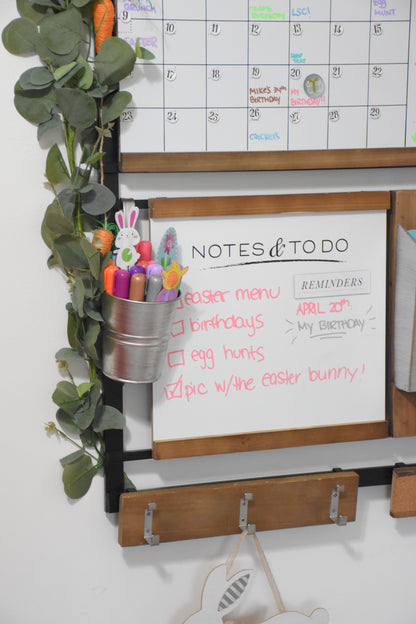 9
10
11
12
13
14
15
BIRTHDAY
LSC!
EGG
HUNT
16
17
18
19
20
21
22
MIKE'S
BIRTHDAY
MY
BIRTHDAY
23
24
25
26
27
28
29
NOTES & TO DO
easter menu
birthdays
egg hunts
pic w/the easter bunny!
REMINDERS
APRIL 20th
MY BIRTHDAY